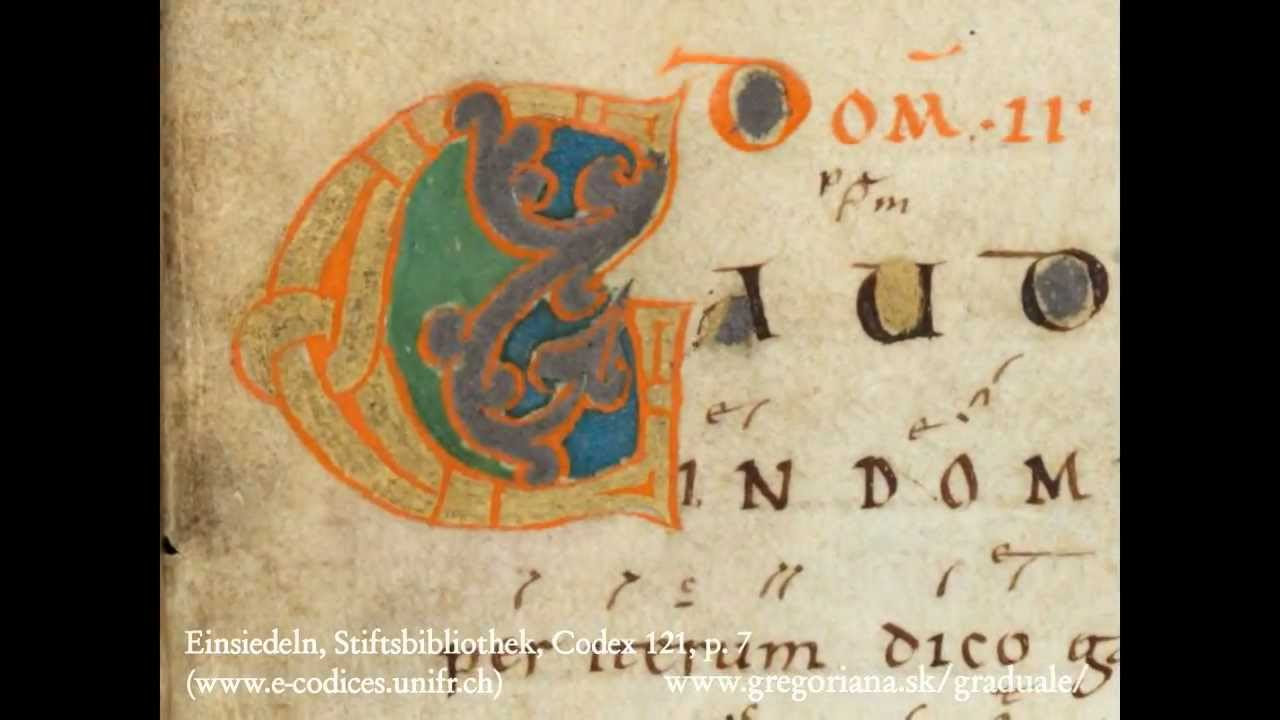 DOM̄·II·
p̄ſm
GAUD
IN DOM
per iterum dico ga
Einsiedeln, Stiftsbibliothek, Codex 121, p. 7
(www.e-codices.unifr.ch)
www.gregoriana.sk/graduale/